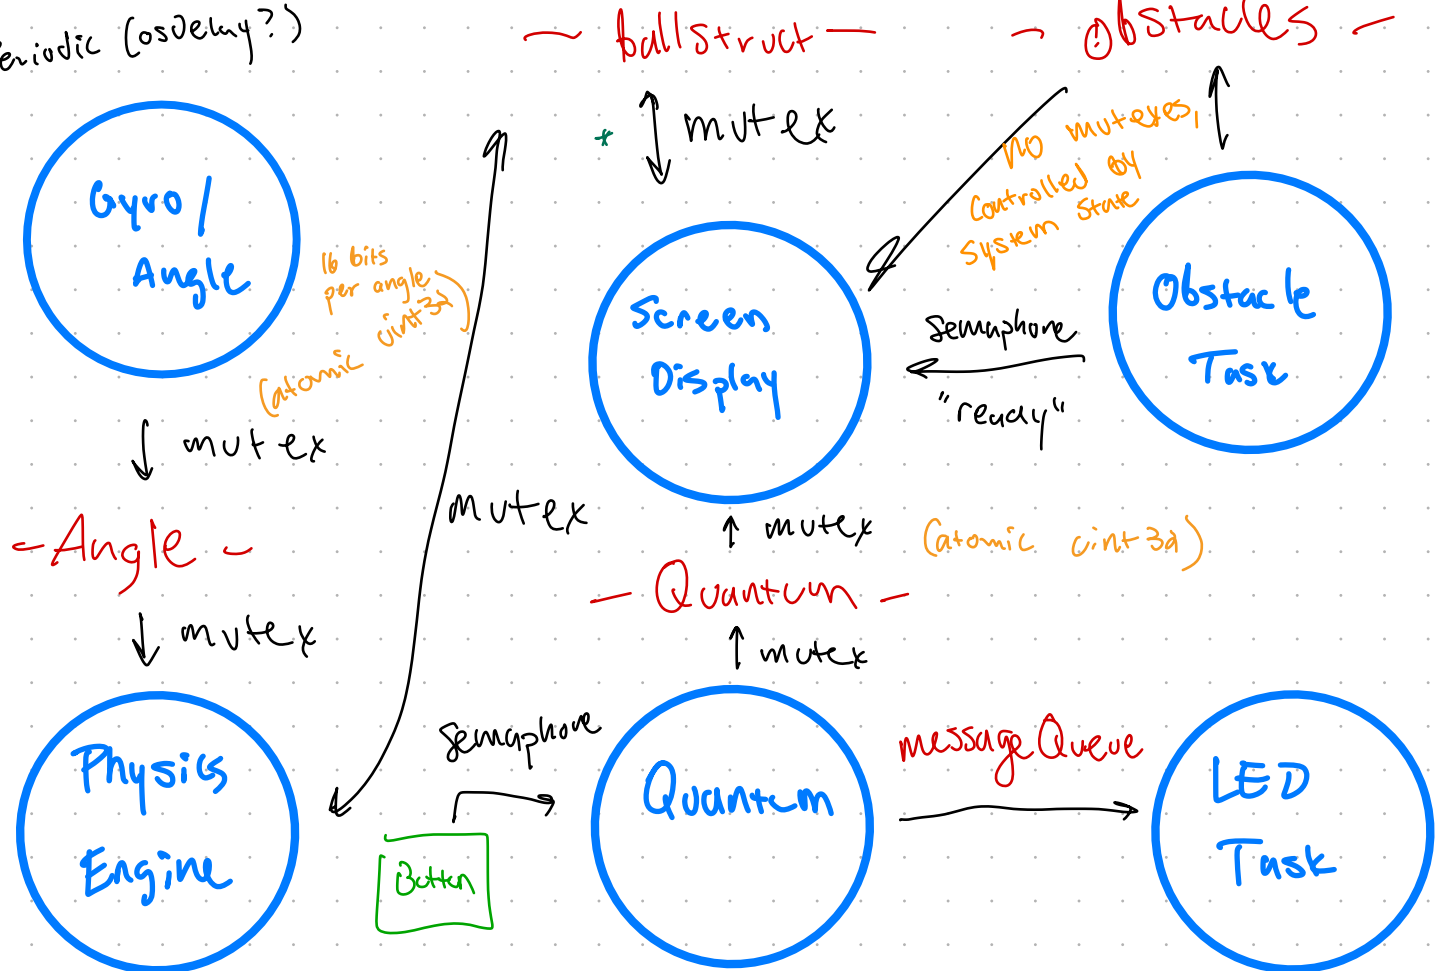 eriodic (osDelay?)
- ballStruct -
- Obstacles -
* mutex
No mutexes,
Controlled by
System State
Gyro /
Angle
16 bits
per angle
(atomic uint32)
Screen
Display
Obstacle
Task
Semaphore
"ready"
mutex
mutex
mutex
(atomic uint32)
- Angle -
- Quantum -
mutex
mutex
Semaphore
messageQueue
Physics
Engine
Button
Quantum
LED
Task